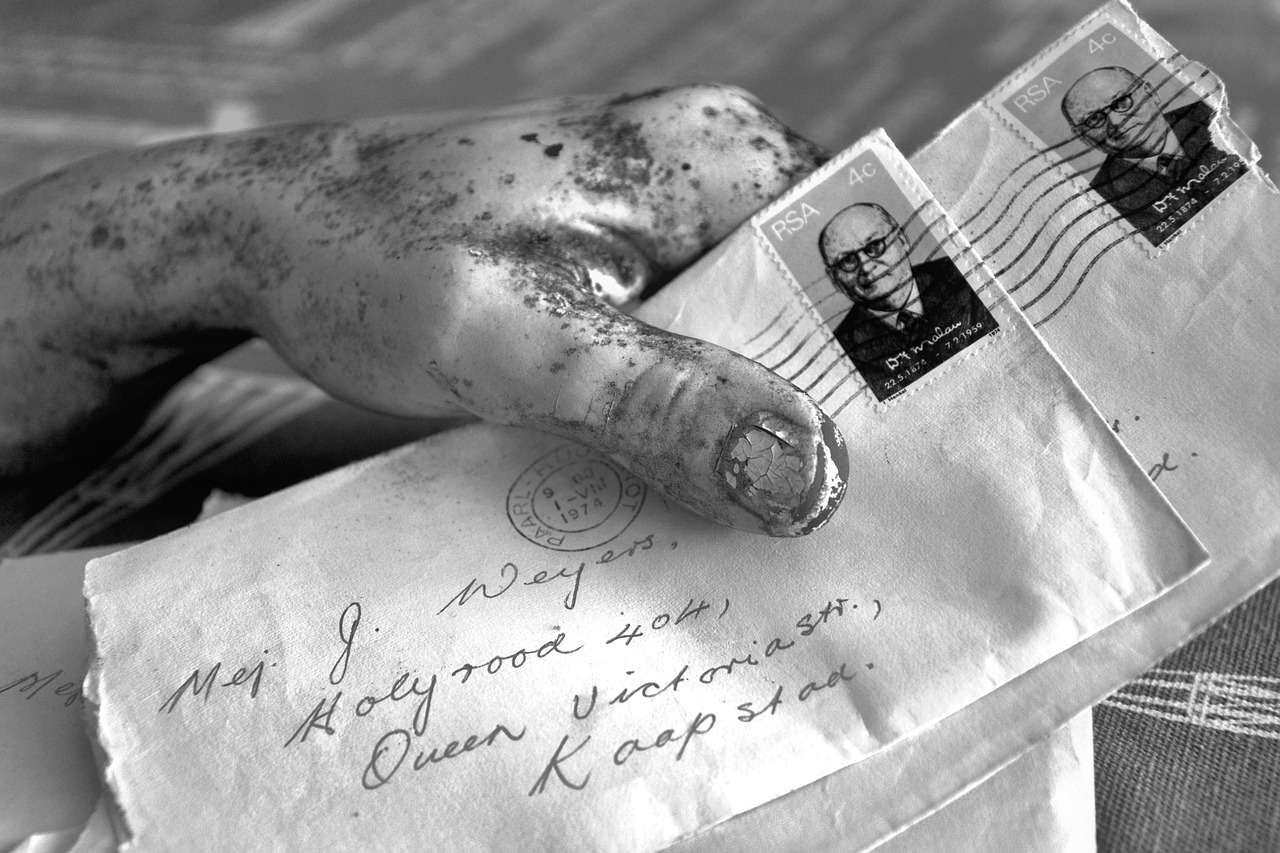 RSA 4c
DF Malan
22.5.1874 - 7.2.1959
RSA 4c
DF Malan
22.5.1874 - 7.2.19
PAARL-HUGUENOT
9
1 -VIII
1974
Mej. J. Weyers,
Holyrood 404,
Queen Victoriastr.,
Kaapstad.
Mej
d.